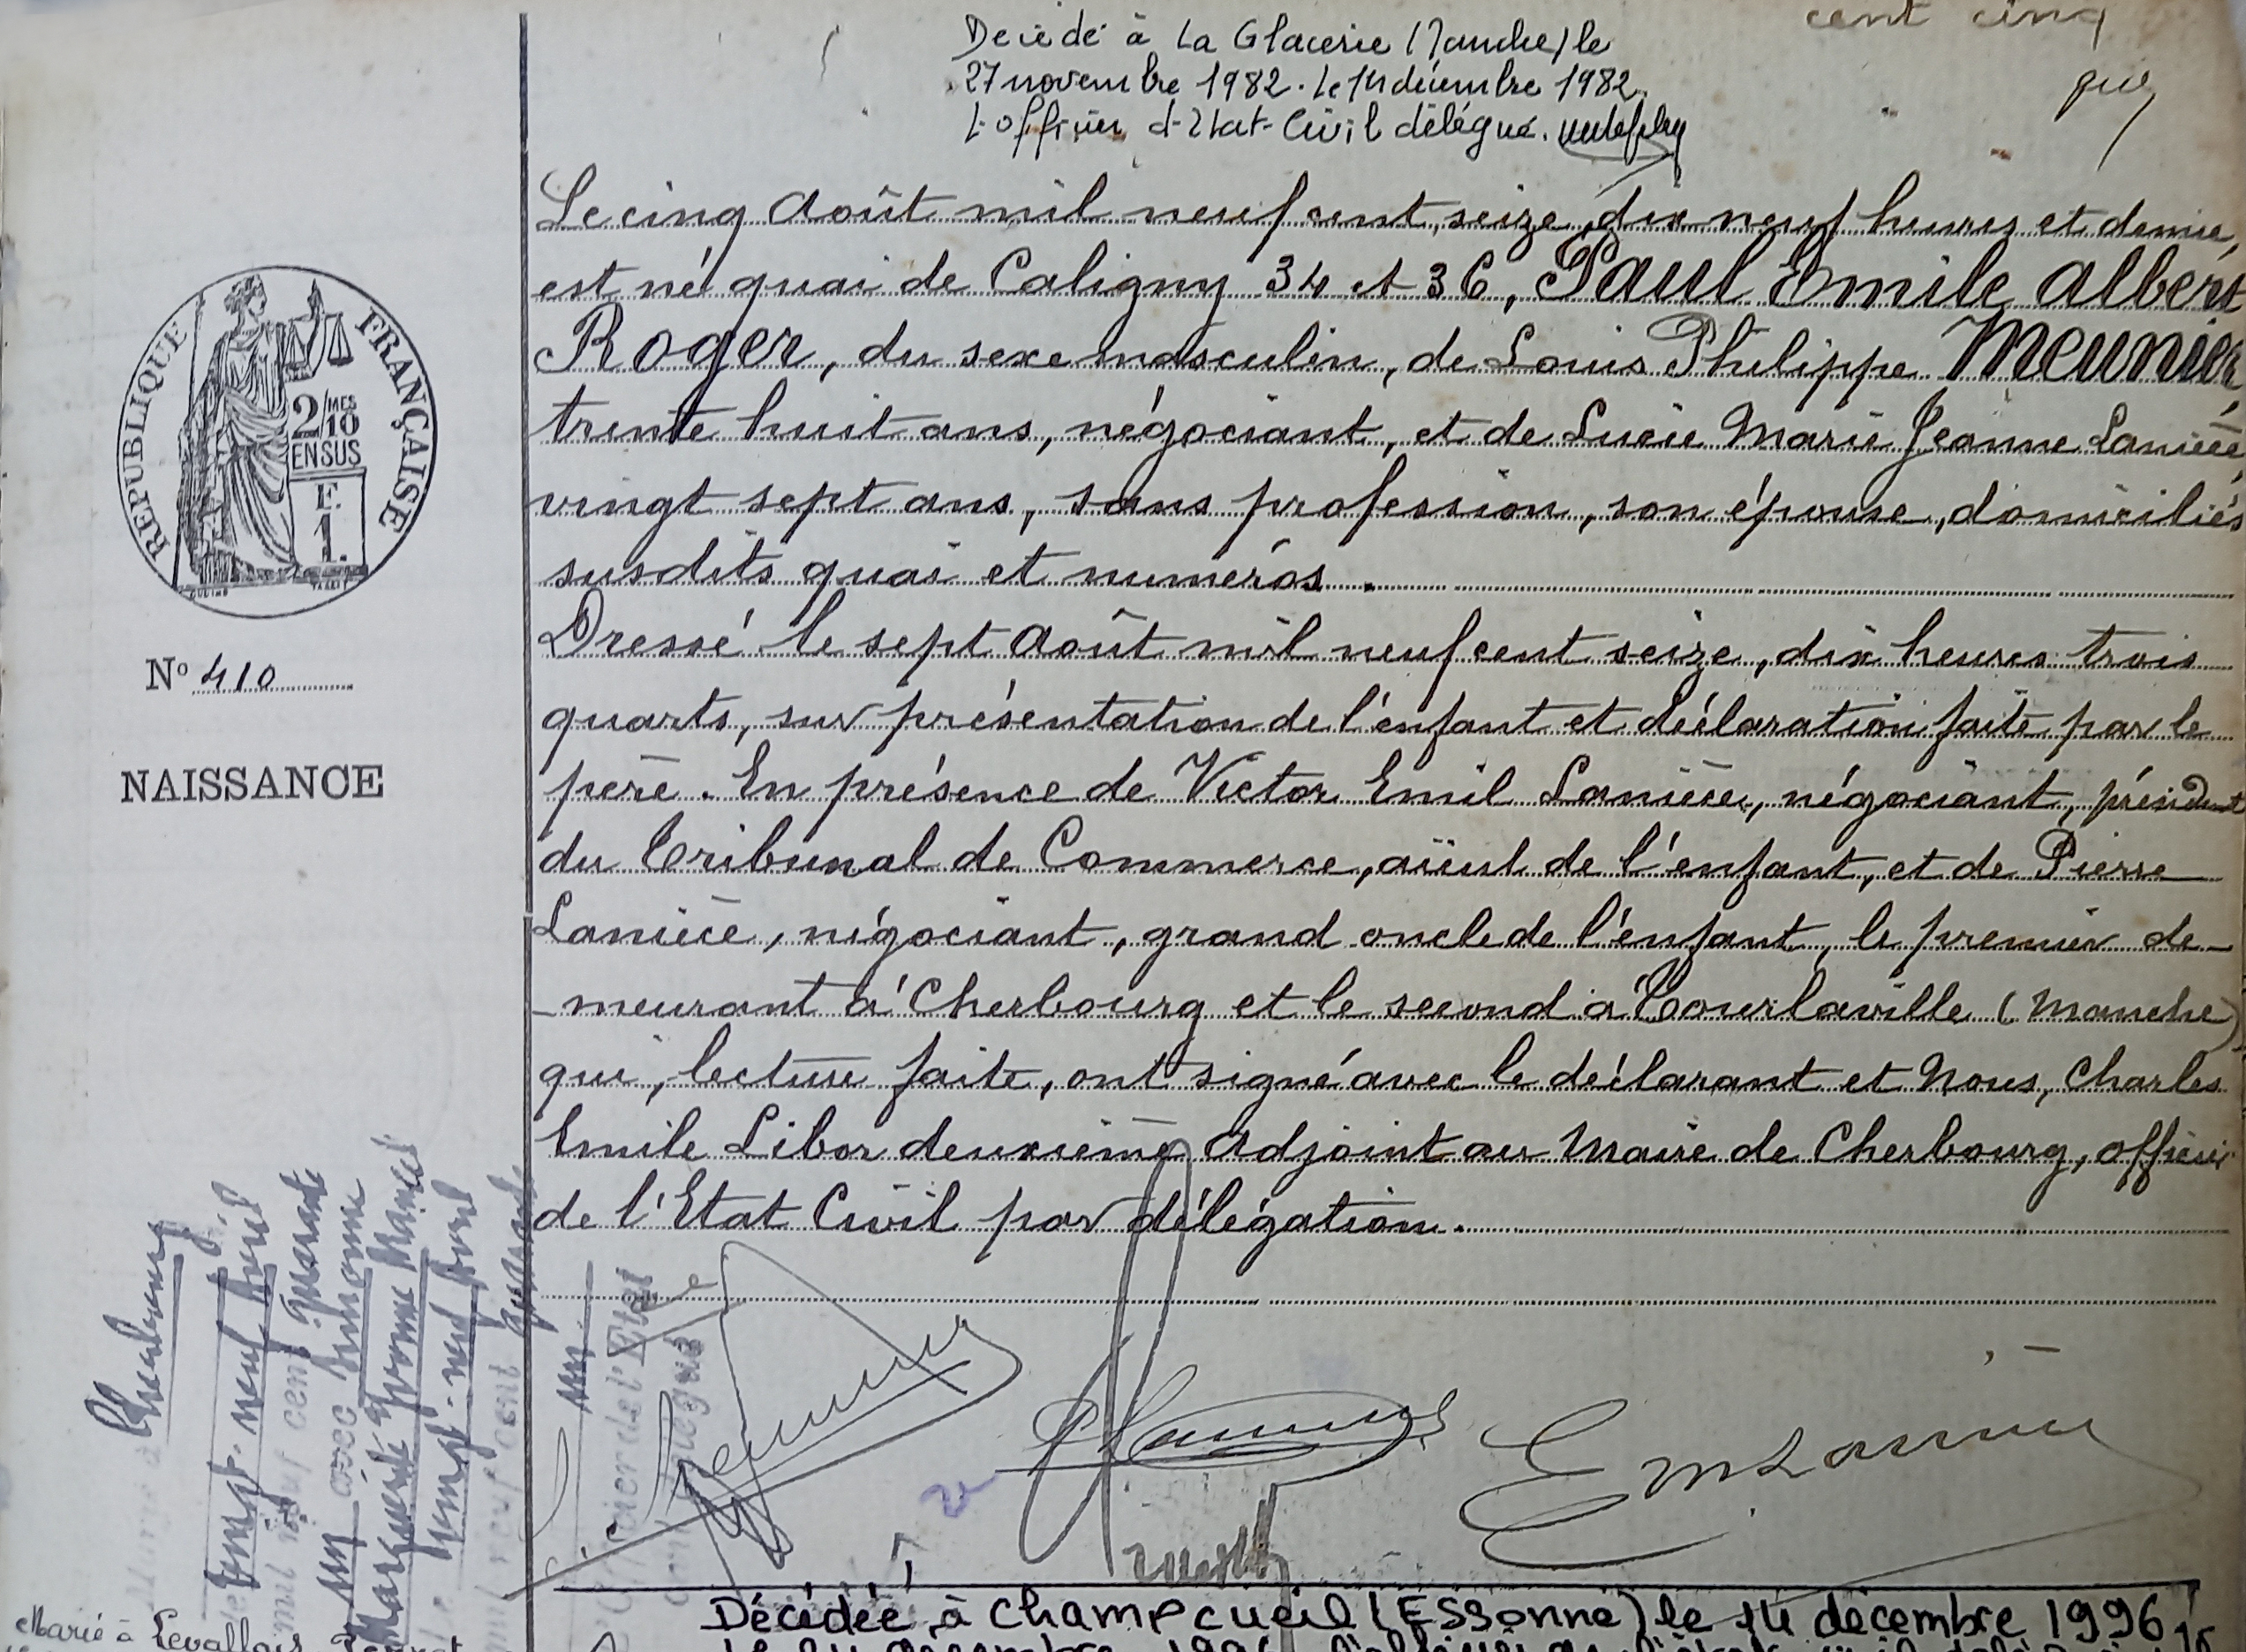 cent cinq
Décédé à La Glacerie (Manche) le
27 novembre 1982. Le 14 décembre 1982.
L'officier d'Etat-Civil délégué.
Le cinq Août mil neuf cent seize, dix neuf heures et demie,
est né quai de Caligny 34 et 36, Paul Emile Albert
Roger, du sexe masculin, de Louis Philippe Meunier
trente huit ans, négociant, et de Lucie Marie Jeanne Lanièce,
vingt sept ans, sans profession, son épouse, domiciliés
susdits quai et numéros.
Dressé le sept Août mil neuf cent seize, dix heures trois
quarts, sur présentation de l'enfant et déclaration faite par le
père. En présence de Victor Emil Lanièce, négociant, président
du Tribunal de Commerce, aïeul de l'enfant, et de Pierre
Lanièce, négociant, grand oncle de l'enfant, le premier de-
-meurant à Cherbourg et le second à Tourlaville (Manche)
qui, lecture faite, ont signé avec le déclarant et Nous, Charles
Emile Libor deuxième Adjoint au Maire de Cherbourg, officier
de l'Etat Civil par délégation.
REPUBLIQUE FRANÇAISE
2/10 MES
EN SUS
E.
1.
N° 410
NAISSANCE
Cherbourg
vingt-neuf Avril
mil neuf cent quarante
un avec Simonne
Marguerite Yvonne
vingt-neuf Avril
neuf cent quarante
un
Officier de l'Etat
Em Lanièce
Marié à Levallois-Perret
Décédée à Champcueil (Essonne) le 14 décembre 1996